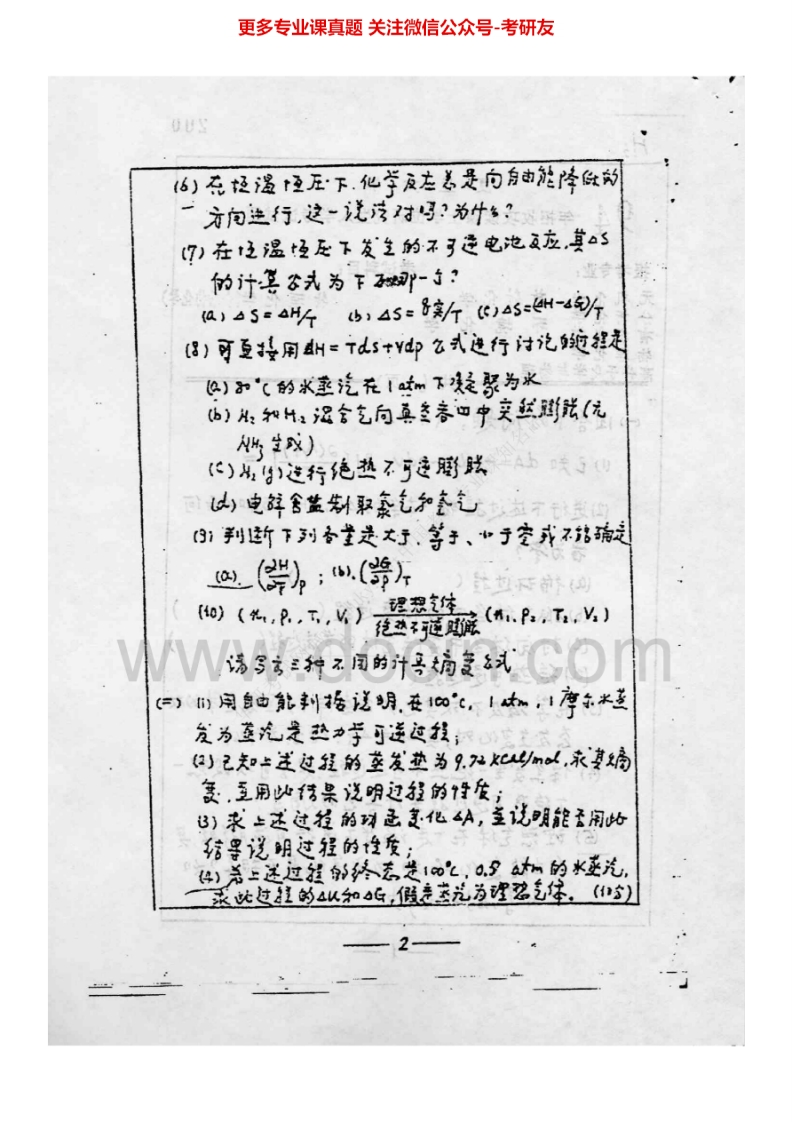 更多专业课真题 关注微信公众号-考研友
200
(6) 在恒温恒压下,化学反应总是向自由能降低的
方向进行,这一说法对吗?为什么?
(7) 在恒温恒压下发生的不可逆电池反应,其ΔS
的计算公式为下列哪一个?
(a) ΔS=ΔH/T (b) ΔS=q实/T (c) ΔS=(ΔH-ΔG)/T
(8) 可直接用dH=Tds+Vdp公式进行讨论的过程是
(a) 80°C的水蒸汽在1atm下凝聚为水
(b) N₂和H₂混合气向真空容四中突然膨胀(无
NH₃生成)
(c) H₂(g)进行绝热不可逆膨胀
(d) 电解食盐制取氯气和氢气
(9) 判断下列各量是大于、等于、小于零或不能确定
(a). (∂H/∂T)p ; (b). (∂G/∂p)T
(10) (n₁, P₁, T₁, V₁) 理想气体 绝热不可逆膨胀 (n₁, P₂, T₂, V₂)
请写出三种不同的计算熵变公式
(二) (1) 用自由能判据说明,在100°C, 1atm, 1摩尔水蒸
发为蒸汽是热力学可逆过程;
(2) 已知上述过程的蒸发热为9.72 Kcal/mol,求其熵
变,并用此结果说明过程的性质;
(3) 求上述过程的功函变化ΔA,并说明能否用此
结果说明过程的性质;
(4) 若上述过程的终态是100°C, 0.5 atm的水蒸汽,
求此过程的ΔU和ΔG,假定蒸汽为理想气体。
www.docin.com
2